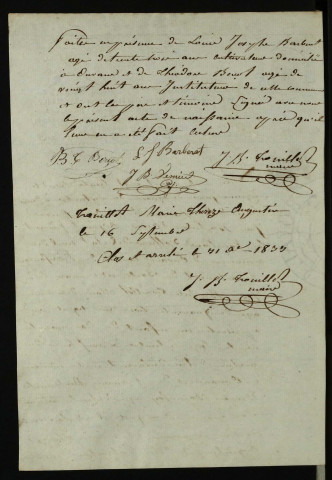 faites en présence de Louis Joseph Barbarat
agé de trente trois ans cultivateur domicilié
à et de Théodore agé de
vingt huit ans Instituteur de cette commune
et ont le père et témoins signé avec nous
le présent acte de naissance après qu'il
leur en a été fait lecture
L J Barbarat J Bte Trouillot
maire
J B
Trouillot Marie Thérèze Augustine
le 16 Septembre
Clos et arrêté le 31 Xbre 1833
J. Bte Trouillot
maire